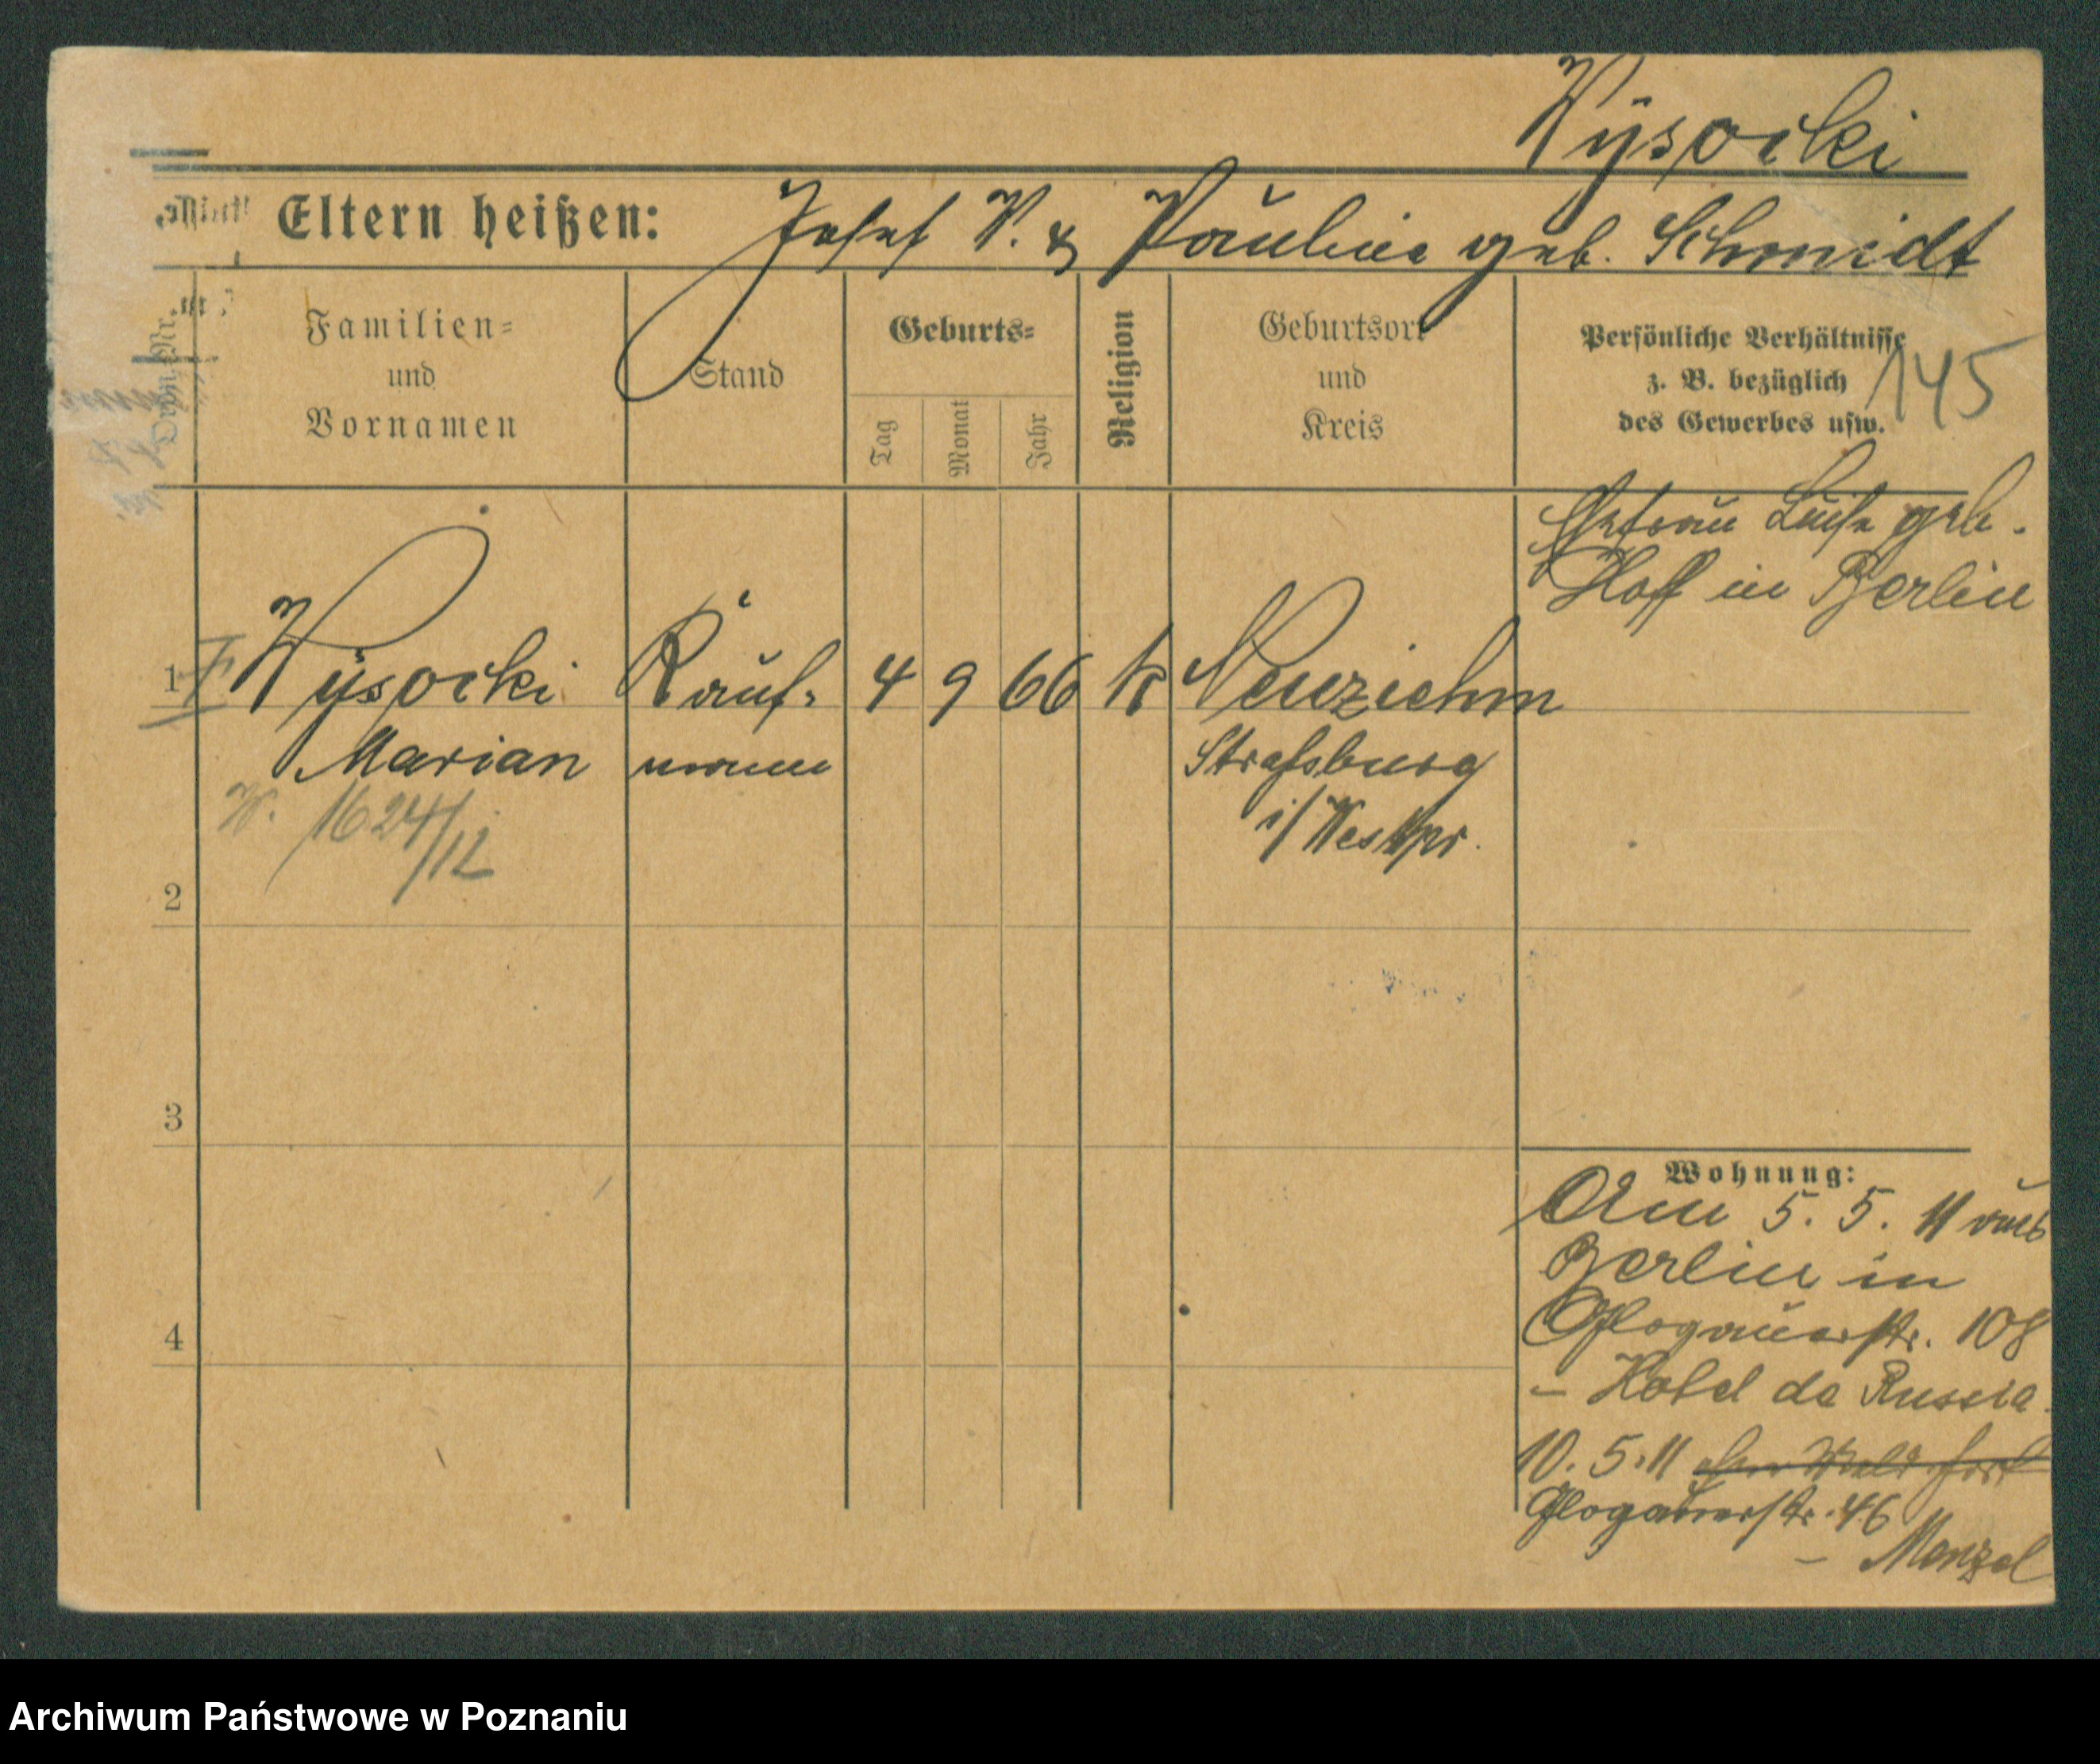 Wÿsocki
Eltern heißen: Josef W. & Pauline geb. Schmidt
Ordn.-Nr.
Familien-
und
Vornamen
Stand
Geburts-
Tag
Monat
Jahr
Religion
Geburtsort
und
Kreis
Persönliche Verhältnisse
z. B. bezüglich
des Gewerbes usw.
145
Ehefrau Luise geb.
Hoff in Berlin
1 Wÿsocki Kauf- 4 9 66 k Neuziehm
Marian mann Strasburg
i/ Westpr.
W. 1624/12
2
3
4
Wohnung:
Am 5. 5. 11 aus
Berlin in
Glogauerstr. 108
– Hotel de Russie.
10. 5. 11 ohne Meld. fort
Glogauerstr. 46
– Menzel
Archiwum Państwowe w Poznaniu